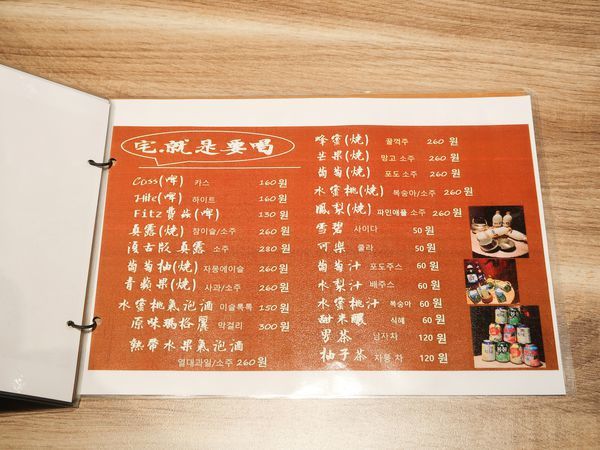 宅.就是要喝
Cass(啤) 카스 160 원
Hite(啤) 하이트 160 원
Fitz 費茲(啤) 130 원
真露(燒) 참이슬/소주 260 원
復古版 真露 소주 280 원
葡萄柚(燒) 자몽에이슬 260 원
青蘋果(燒) 사과/소주 260 원
水蜜桃氣泡酒 미슬톡톡 150 원
原味瑪格麗 막걸리 300 원
熱帶水果氣泡酒
열대과일/소주 260 원
蜂蜜(燒) 꿀꺽주 260 원
芒果(燒) 망고 소주 260 원
葡萄(燒) 포도 소주 260 원
水蜜桃(燒) 복숭아/소주 260 원
鳳梨(燒) 파인애플 소주 260 원
雪碧 사이다 50 원
可樂 콜라 50 원
葡萄汁 포도주스 60 원
水梨汁 배주스 60 원
水蜜桃汁 복숭아 60 원
甜米釀 식혜 60 원
男茶 남자차 120 원
柚子茶 자몽 차 120 원